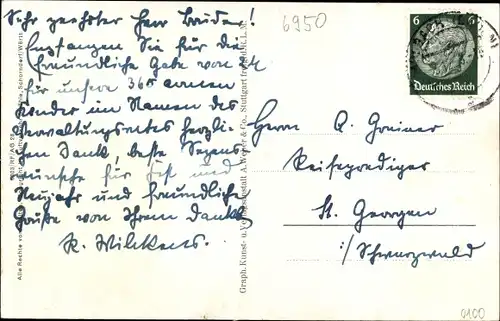 Sehr geehrter Herr Bruder!
Empfangen Sie für die
freundliche Gabe von
für unsere 360 armen
Kinder im Namen des
Verwaltungsrates herzli-
chen Dank, beste Segens-
wünsche für Fest und
Neujahr und freundliche
Grüße von Ihrem dankb.
K. Wilckens.
6950
6 6
Deutsches Reich
Herrn G. Greiner
Reiseprediger
St. Georgen
i/Schwarzwald
Graph. Kunst- u. Verlagsanstalt A. Weber & Co., Stuttgart
Alle Rechte
Schorndorf/Württ.
0100